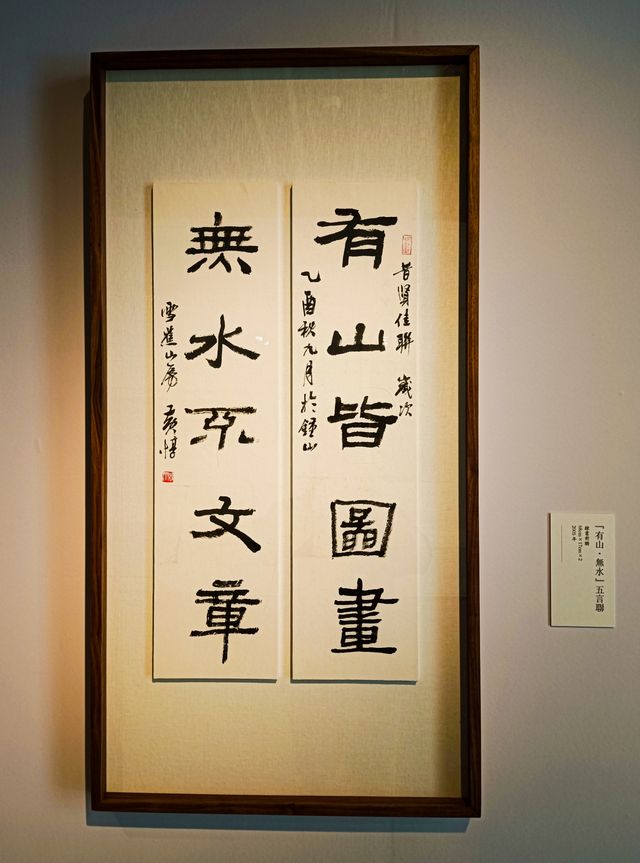 昔賢佳聯 歲次
有山皆圖畫
乙酉秋九月於鍾山
無水不文章
雪蕉山房 黃惇
「有山・無水」五言聯
2005 年